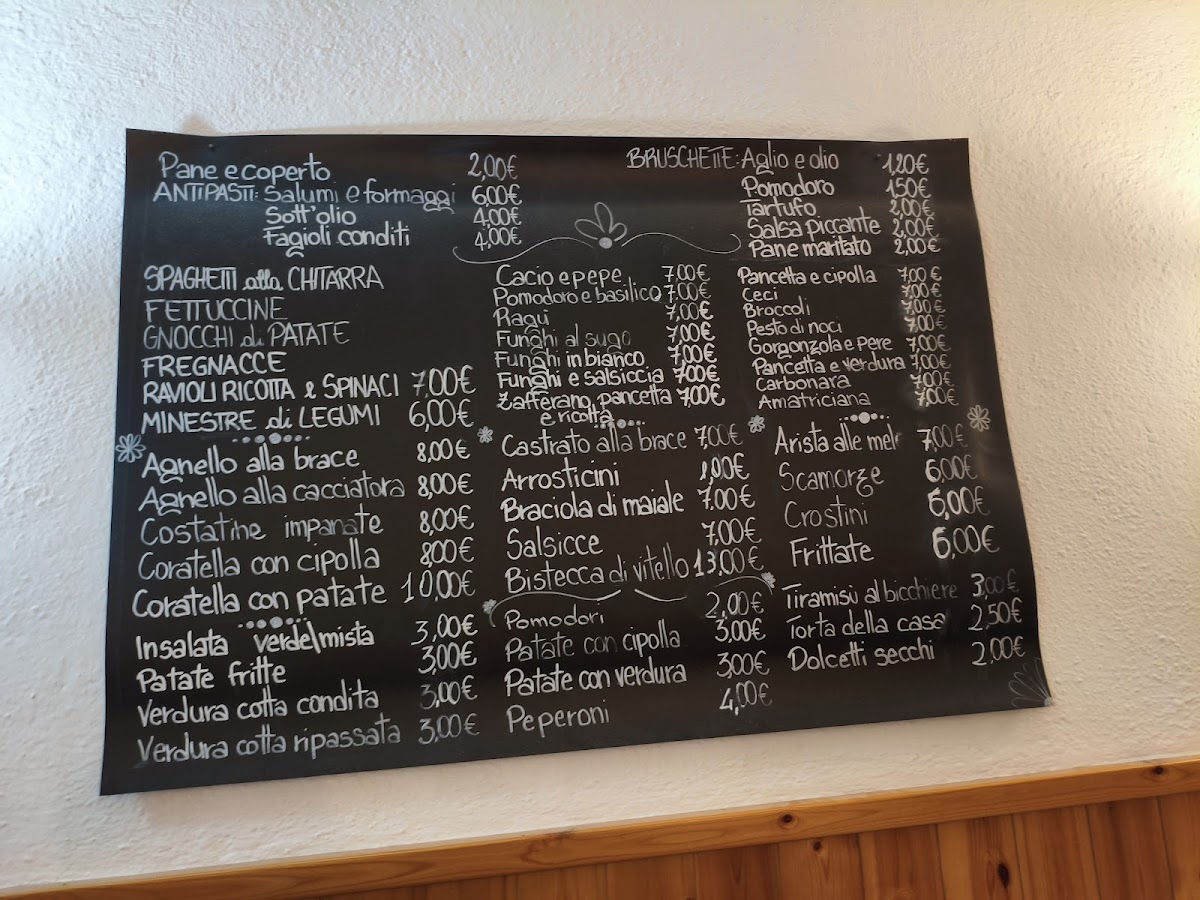 Pane e coperto 2,00€
ANTIPASTI: Salumi e formaggi 6,00€
Sott'olio 4,00€
Fagioli conditi 4,00€
BRUSCHETTE: Aglio e olio 1,20€
Pomodoro 1,50€
Tartufo 2,00€
Salsa piccante 2,00€
Pane maritato 2,00€
SPAGHETTI alla CHITARRA
FETTUCCINE
GNOCCHI di PATATE
FREGNACCE
RAVIOLI RICOTTA & SPINACI 7,00€
MINESTRE di LEGUMI 6,00€
Cacio e pepe 7,00€
Pomodoro e basilico 7,00€
Ragù 7,00€
Funghi al sugo 7,00€
Funghi in bianco 7,00€
Funghi e salsiccia 7,00€
Zafferano, pancetta 7,00€
e ricotta
Pancetta e cipolla 7,00€
Ceci 7,00€
Broccoli 7,00€
Pesto di noci 7,00€
Gorgonzola e pere 7,00€
Pancetta e verdura 7,00€
Carbonara 7,00€
Amatriciana 7,00€
Agnello alla brace 8,00€
Agnello alla cacciatora 8,00€
Costatine impanate 8,00€
Coratella con cipolla 8,00€
Coratella con patate 10,00€
Castrato alla brace 7,00€
Arrosticini 1,00€
Braciola di maiale 7,00€
Salsicce 7,00€
Bistecca di vitello 13,00€
Arista alle mele 7,00€
Scamorze 6,00€
Crostini 6,00€
Frittate 6,00€
Insalata verde\mista 3,00€
Patate fritte 3,00€
Verdura cotta condita 3,00€
Verdura cotta ripassata 3,00€
Pomodori 2,00€
Patate con cipolla 3,00€
Patate con verdura 3,00€
Peperoni 4,00€
Tiramisù al bicchiere 3,00€
Torta della casa 2,50€
Dolcetti secchi 2,00€